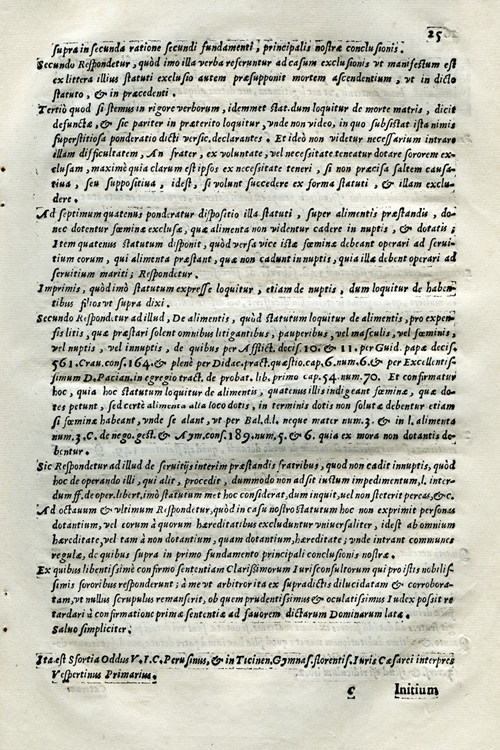 25
supra in secunda ratione secundi fundamenti, principalis nostræ conclusionis.
Secundo Respondetur, quòd imo illa verba referuntur ad casum exclusionis vt manifestum est
ex littera illius statuti exclusio autem præsupponit mortem ascendentium, vt in dicto
statuto, & in præcedenti.
Tertiò quod si stemus in rigore verborum, idemmet stat. dum loquitur de morte matris, dicit
defunctæ, & sic pariter in præterito loquitur, vnde non video, in quo subsistat ista nimis
superstitiosa ponderatio dicti versic. declarantes. Et ideò non videtur necessarium intrare
illam difficultatem, An frater, ex voluntate, vel necessitate teneatur dotare sororem ex-
clusam, maximò quia clarum est ipsos ex necessitate teneri, si non præcisa saltem causa-
tiua, seu suppositiua, idest, si volunt succedere ex forma statuti, & illam exclu-
dere.
Ad septimum quatenus ponderatur dispositio illa statuti, super alimentis præstandis, do-
nec dotentur fœminæ exclusæ, quæ alimenta non videntur cadere in nuptis, & dotatis;
Item quatenus statutum disponit, quòd versa vice istæ fœminæ debeant operari ad serui-
tium eorum, qui alimenta præstant, quæ non cadunt in nuptis, quia illæ debent operari ad
seruitium mariti; Respondetur.
Imprimis, quòd imò statutum expresse loquitur, etiam de nuptis, dum loquitur de haben-
tibus filios vt supra dixi.
Secundo Respondetur ad illud, De alimentis, quòd statutum loquitur de alimentis, pro expen-
sis litis, quæ præstari solent omnibus litigantibus, pauperibus, vel masculis, vel fœminis,
vel nuptis, vel innuptis, de quibus per Afflict. decis. 10. & 11. per Guid. papæ decis.
561. Crau. cons. 164. & plenè per Didac. pract. quæstio. cap. 6. num. 6. & per Excellentis-
simum D. Pacian. in egregio tract. de probat. lib. primo cap. 54. num. 70. Et confirmatur
hoc, quia hoc statutum loquitur de alimentis, quatenus illis indigeant fœminæ, quæ do-
tes petunt, sed certè alimenta alia loco dotis, in terminis dotis non solutæ debentur etiam
si fœminæ habeant, vnde se alant, vt per Bal. d. l. neque mater num. 3. & in l. alimenta
num. 3. C. de nego. gest. & Aym. cons. 189. num. 5. & 6. quia ex mora non dotantis de-
bentur.
Sic Respondetur ad illud de seruitijs interim præstandis fratribus, quod non cadit innuptis, quòd
hoc de operando illi, qui alit, procedit, dummodo non adsit iustum impedimentum, l. inter-
dum ff. de oper. libert. imò statutum met hoc considerat, dum inquit, uel non steterit per eas, &c.
Ad octauum & vltimum Respondetur, quòd in casu nostro statutum hoc non exprimit personas
dotantium, vel eorum à quorum hæreditatibus excluduntur vniuersaliter, idest ab omnium
hæreditate, vel tam à non dotantium, quam dotantium, hæreditate; vnde intrant communes
regulæ, de quibus supra in primo fundamento principali conclusionis nostræ.
Ex quibus libentissimè confirmo sententiam Clarissimorum Iurisconsultorum qui pro istis nobilis-
simis sororibus responderunt; à me vt arbitror ita ex supradictis dilucidatam & corrobora-
tam, vt nullus scrupulus remanserit, ob quem prudentissimus & oculatissimus Iudex possit re
tardari à confirmatione primæ sententiæ ad fauorem dictarum Dominarum latæ.
Saluo simpliciter.
Ita est Sfortia Oddus V. I. C. Perusinus, & in Ticinen. Gymnas. florentis. Iuris Cæsarei interpres
Vespertinus Primarius.
C Initium